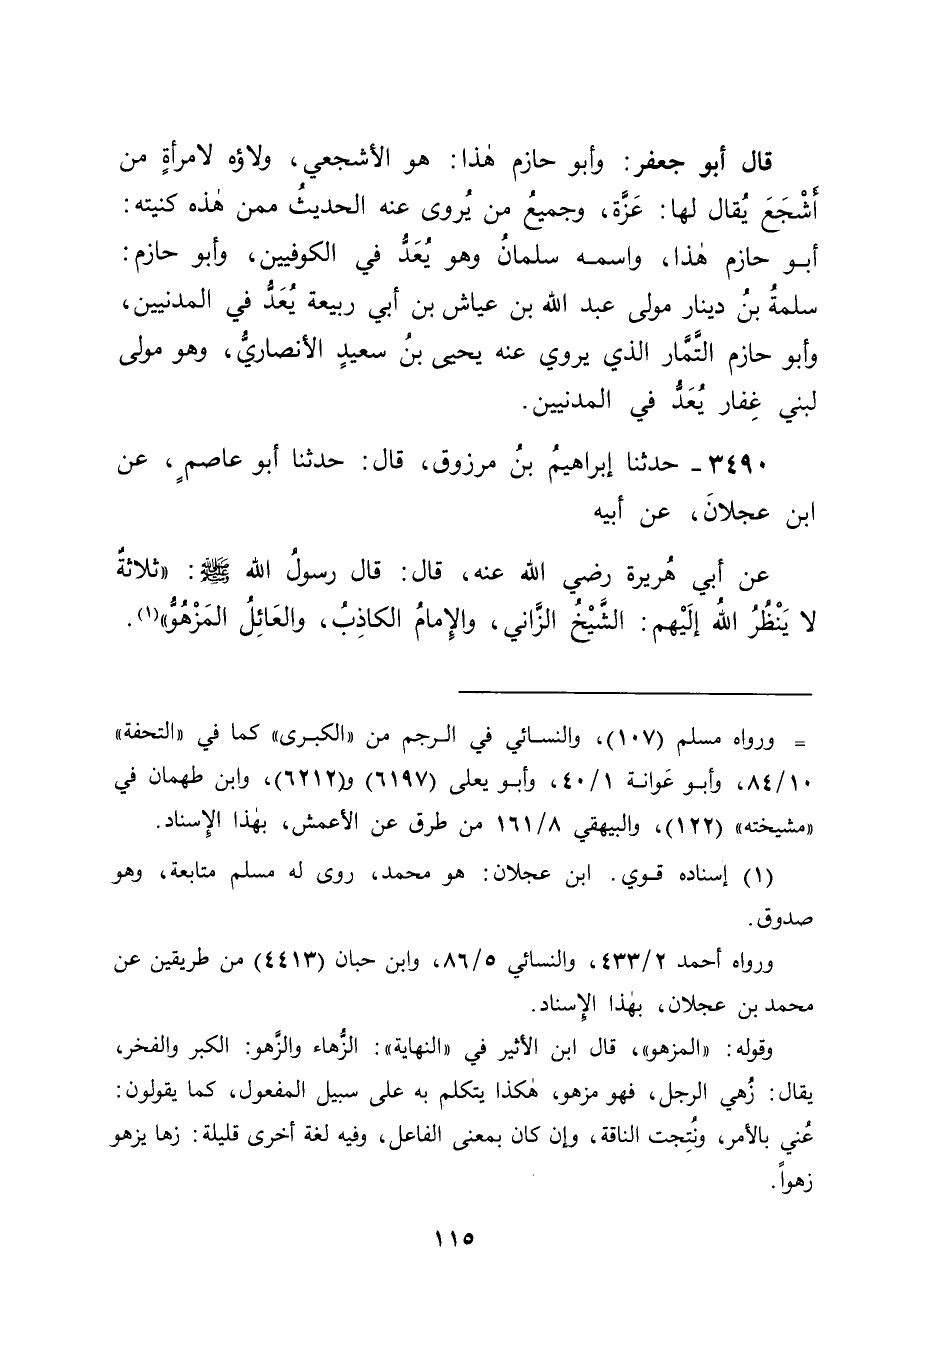 قال أبو جعفر: وأبو حازم هٰذا: هو الأشجعي، ولاؤه لامرأةٍ من
أَشْجَعَ يُقال لها: عَزَّة، وجميعُ من يُروى عنه الحديثُ ممن هٰذه كنيته:
أبو حازم هٰذا، واسمه سلمانُ وهو يُعَدُّ في الكوفيين، وأبو حازم:
سلمةُ بنُ دينار مولى عبد الله بن عياش بن أبي ربيعة يُعَدُّ في المدنيين،
وأبو حازم التَّمَّار الذي يروي عنه يحيى بنُ سعيدٍ الأنصاريُّ، وهو مولى
لبني غِفار يُعَدُّ في المدنيين.
٣٤٩٠ـ حدثنا إبراهيمُ بنُ مرزوق، قال: حدثنا أبو عاصمٍ، عن
ابن عجلانَ، عن أبيه
عن أبي هُريرة رضي الله عنه، قال: قال رسولُ الله ﷺ: «ثلاثةٌ
لا يَنْظُرُ اللهُ إلَيْهم: الشَّيْخُ الزَّاني، والإمامُ الكاذِبُ، والعَائِلُ المَزْهُوُّ»(١).
= ورواه مسلم (١٠٧)، والنسائي في الرجم من «الكبرى» كما في «التحفة»
٨٤/١٠، وأبو عَوانة ٤٠/١، وأبو يعلى (٦١٩٧) و(٦٢١٢)، وابن طهمان في
«مشيخته» (١٢٢)، والبيهقي ١٦١/٨ من طرق عن الأعمش، بهٰذا الإسناد.
(١) إسناده قوي. ابن عجلان: هو محمد، روى له مسلم متابعة، وهو
صدوق.
ورواه أحمد ٤٣٣/٢، والنسائي ٨٦/٥، وابن حبان (٤٤١٣) من طريقين عن
محمد بن عجلان، بهٰذا الإسناد.
وقوله: «المزهو»، قال ابن الأثير في «النهاية»: الزُّهاء والزَّهو: الكبر والفخر،
يقال: زُهي الرجل، فهو مزهو، هٰكذا يتكلم به على سبيل المفعول، كما يقولون:
عُني بالأمر، ونُتِجت الناقة، وإن كان بمعنى الفاعل، وفيه لغة أخرى قليلة: زها يزهو
زهواً.
١١٥